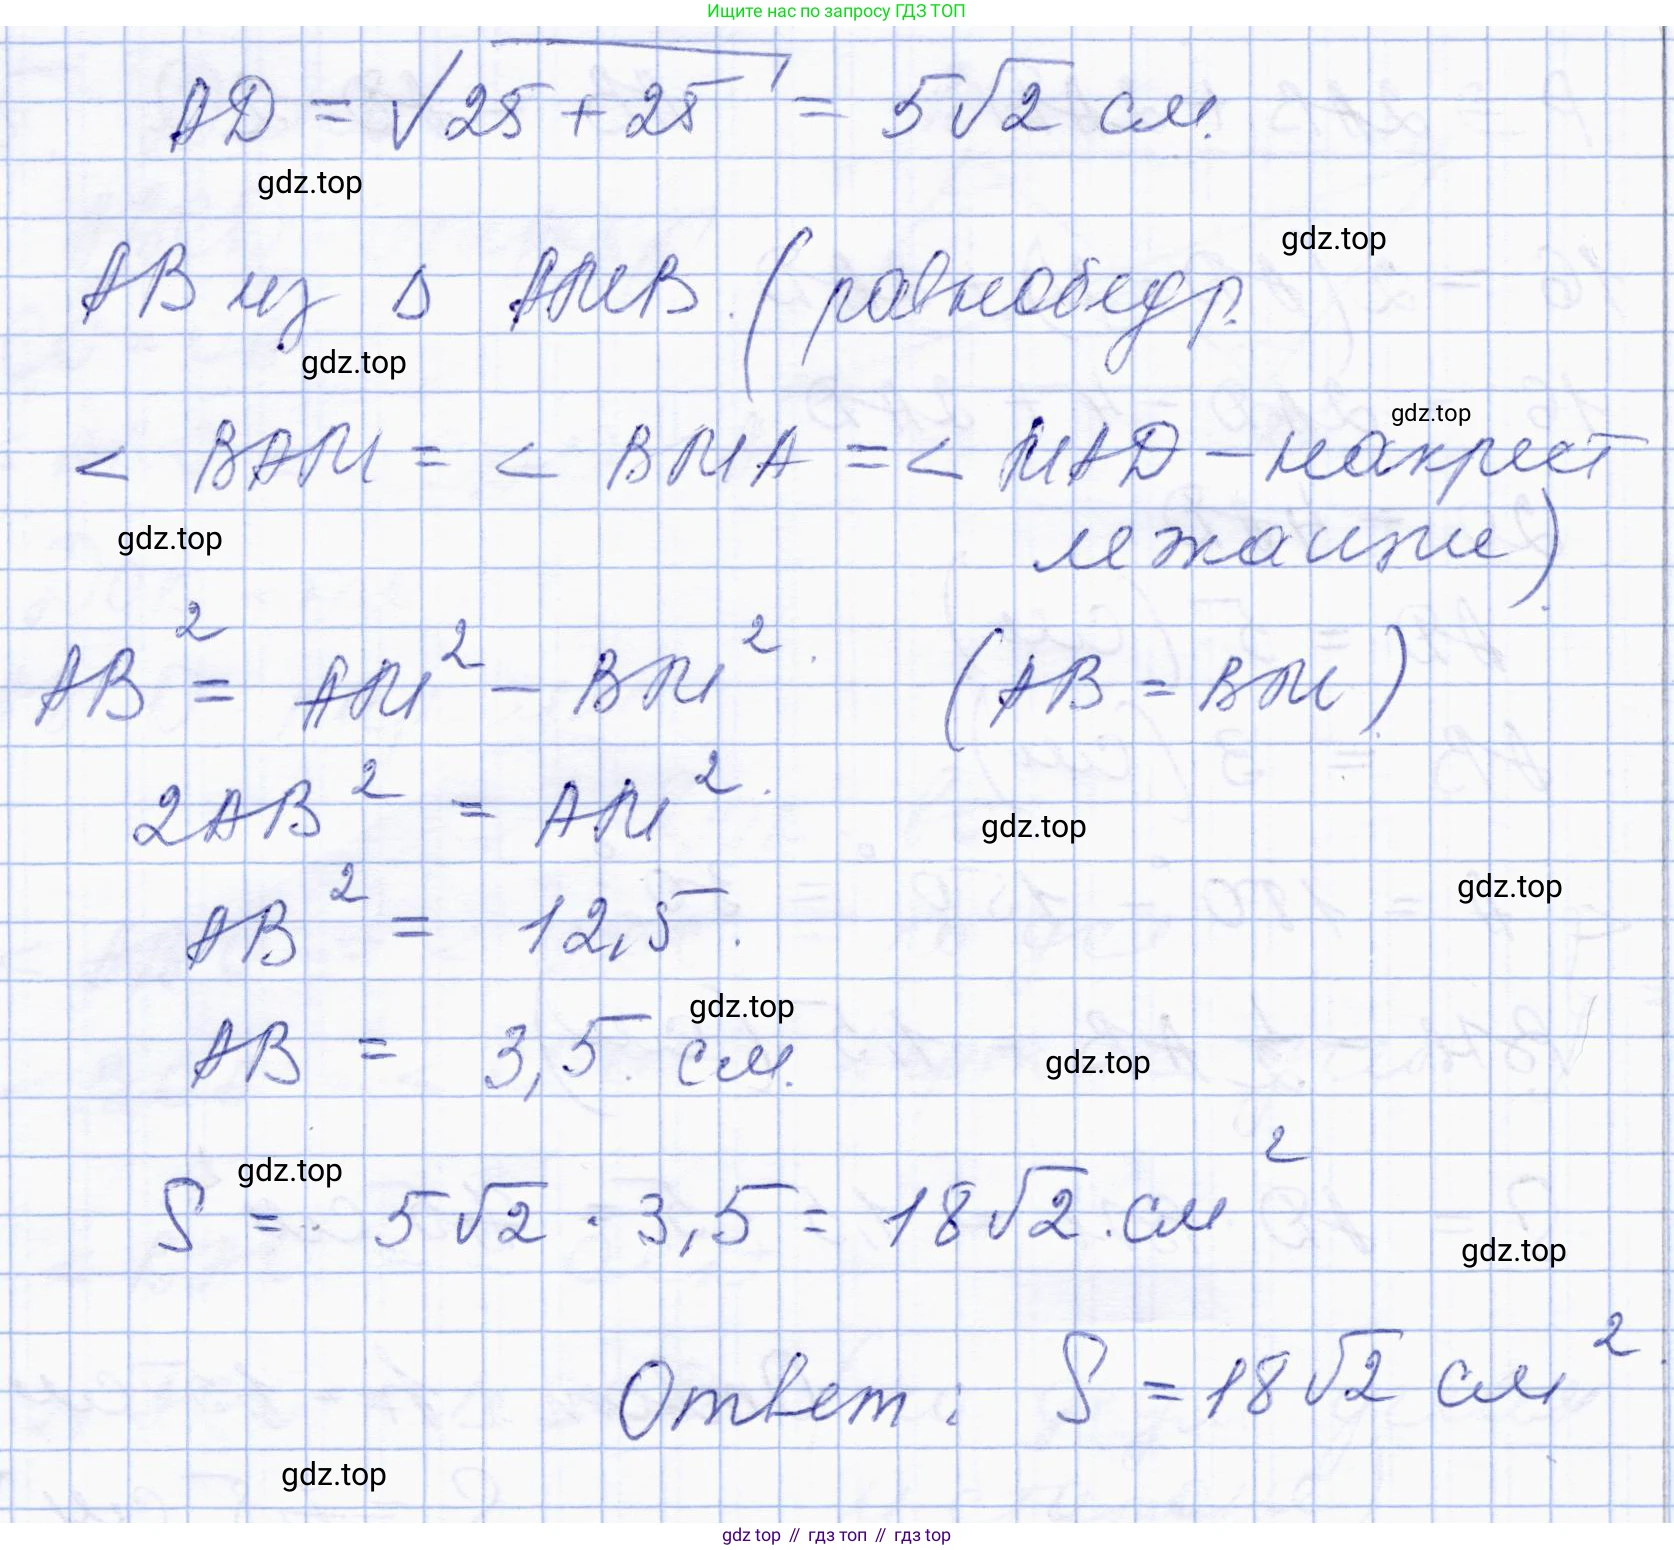 Ищите нас по запросу ГДЗ ТОП
AD = √25 + 25 = 5√2 см.
gdz.top
gdz.top
AB из Δ AMB. (равнобедр.
gdz.top
gdz.top
< BAM = < BMA = < MAD – накрест
лежащие)
gdz.top
AB² = AM² – BM². (AB = BM)
2AB² = AM².
gdz.top
gdz.top
AB² = 12,5.
gdz.top
AB = 3,5. см.
gdz.top
gdz.top
S = 5√2 · 3,5 = 18√2. см²
gdz.top
Ответ: S = 18√2 см².
gdz.top
gdz top // гдз топ // гдз top